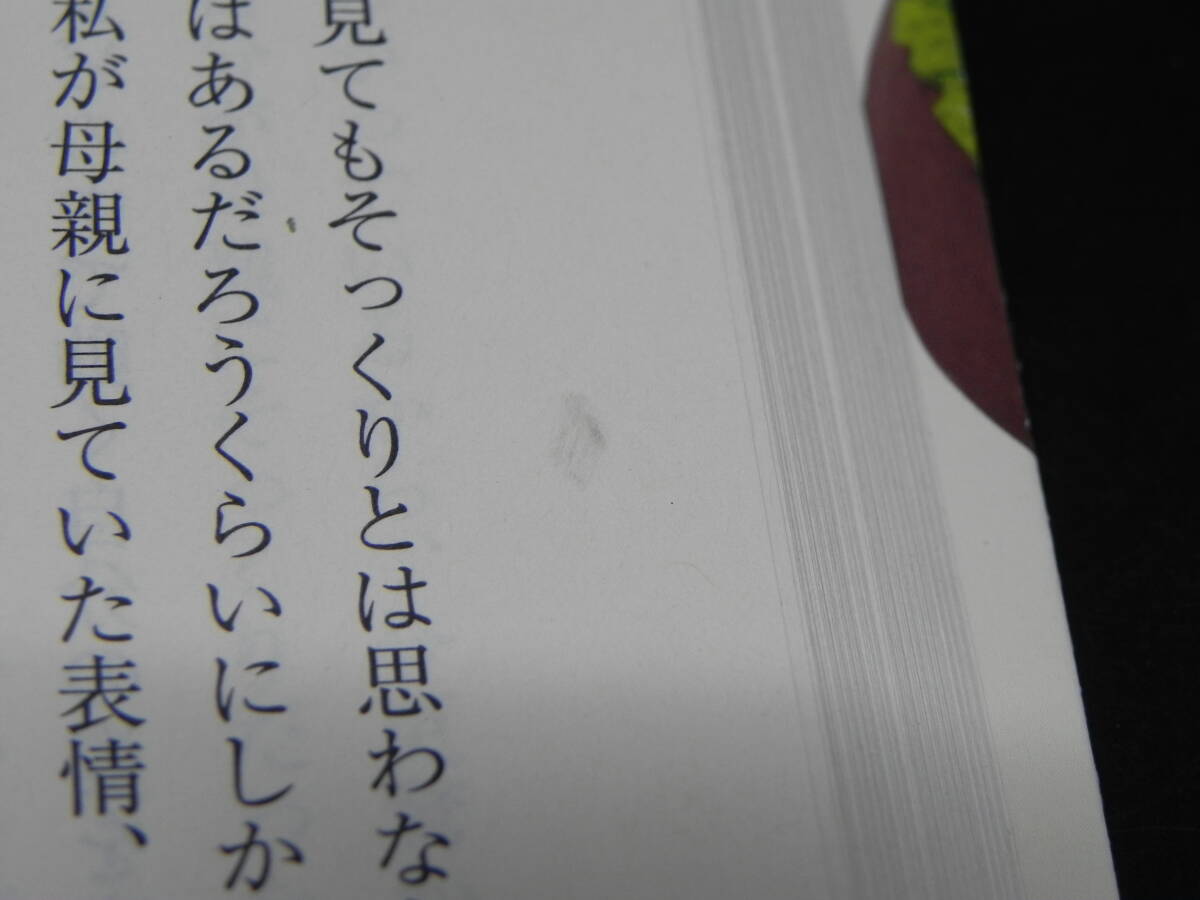 見てもそっくりとは思わな
はあるだろうくらいにしか
私が母親に見ていた表情、